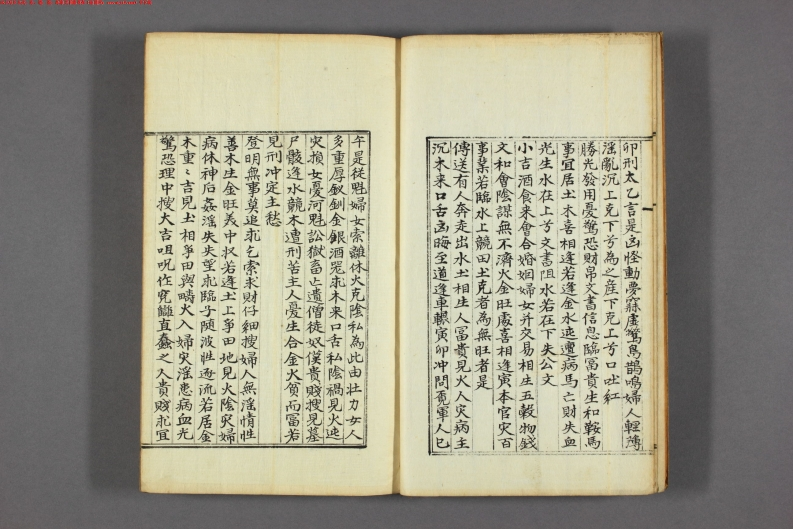 卯刑太乙言是凶怪動夢寐虛驚鳥鵲鳴婦人輕薄
淫亂沉上克下兮為之產下克上兮口吐紅
勝光發用憂驚恐財帛文書信息臨富貴生和鞍馬
事宜居土木喜相逢若逢金水迍遭病馬亡財失血
光生水在上兮文書阻水若在下失公文
小吉酒食來會合婚姻婦女并交易相生五穀物錢
文和會陰謀無不濟火金旺處喜相逢寅本官灾百
事業若臨水上競田土克者為無旺者是
傳送有人奔走出水土相生人冨貴見火人灾病主
沉木来口舌凶晦至道逢車轘寅卯冲問覓軍人巳
午是従魁婦女索離休火克陰私為此由壮力女人
多重厚釵釧金銀酒器求木来口舌私陰禍見火迍
灾損女憂河魁訟獄畜亡遺僧徒奴僕貴賤搜見墓
尸骸逢水競木遭刑苦主人憂生合金火貧而冨若
見刑冲定主愁
登明無事莫追求乞索求財仔細搜婦人無淫惰性
善木生金旺義中収若逢土上爭田地見火陰灾婦
病休神后姦淫失失望求臨子随波性逐流若居金
木重〻吉見土相爭田與疇大入婦灾淫患病血光
驚恐理中搜大吉咀呪作寃讎直蠢之人貴賤求宜